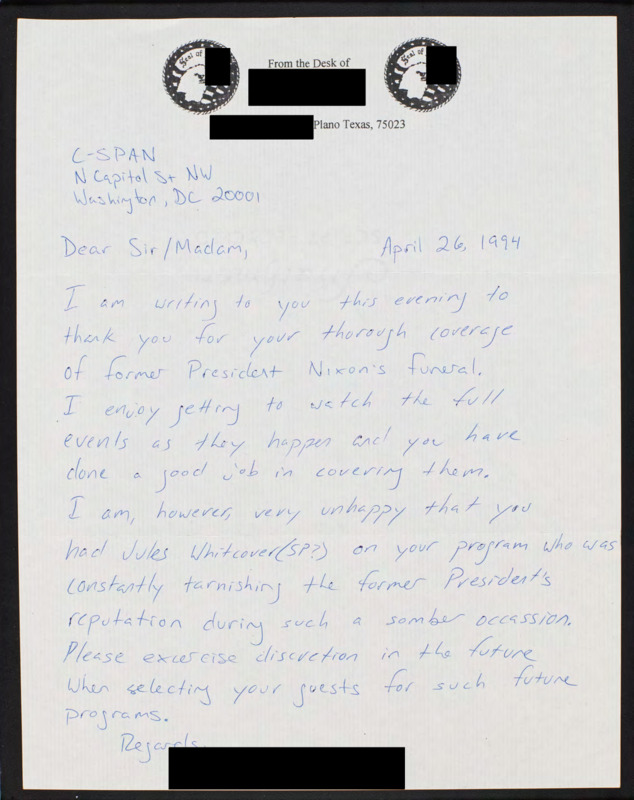 Seal of
From the Desk of
Seal of
Plano Texas, 75023
C-SPAN
N Capitol St NW
Washington, DC 20001
Dear Sir/Madam,
April 26, 1994
I am writing to you this evening to
thank you for your thorough coverage
of former President Nixon's funeral.
I enjoy getting to watch the full
events as they happen and you have
done a good job in covering them.
I am, however, very unhappy that you
had Jules Whitcover(SP?) on your program who was
constantly tarnishing the former President's
reputation during such a somber occassion.
Please excercise discretion in the future
when selecting your guests for such future
programs.
Regards,